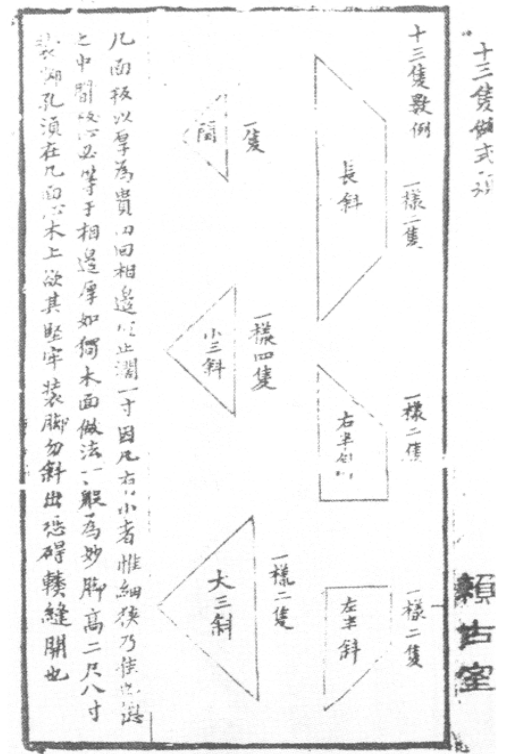 十三隻做式
十三隻數例
一樣二隻
長斜
一樣二隻
右半斜
一樣二隻
左半斜
一隻
一樣四隻
小三斜
一樣二隻
大三斜
几面板以厚為貴四回相邊止濶一寸因几有小者惟細狹乃佳
之中間必等于相邊厚如獨木面做法一般為妙脚高二尺八寸
裝脚孔須在几面心木上欲其堅牢裝脚勿斜出恐碍轃縫開也
賴古室